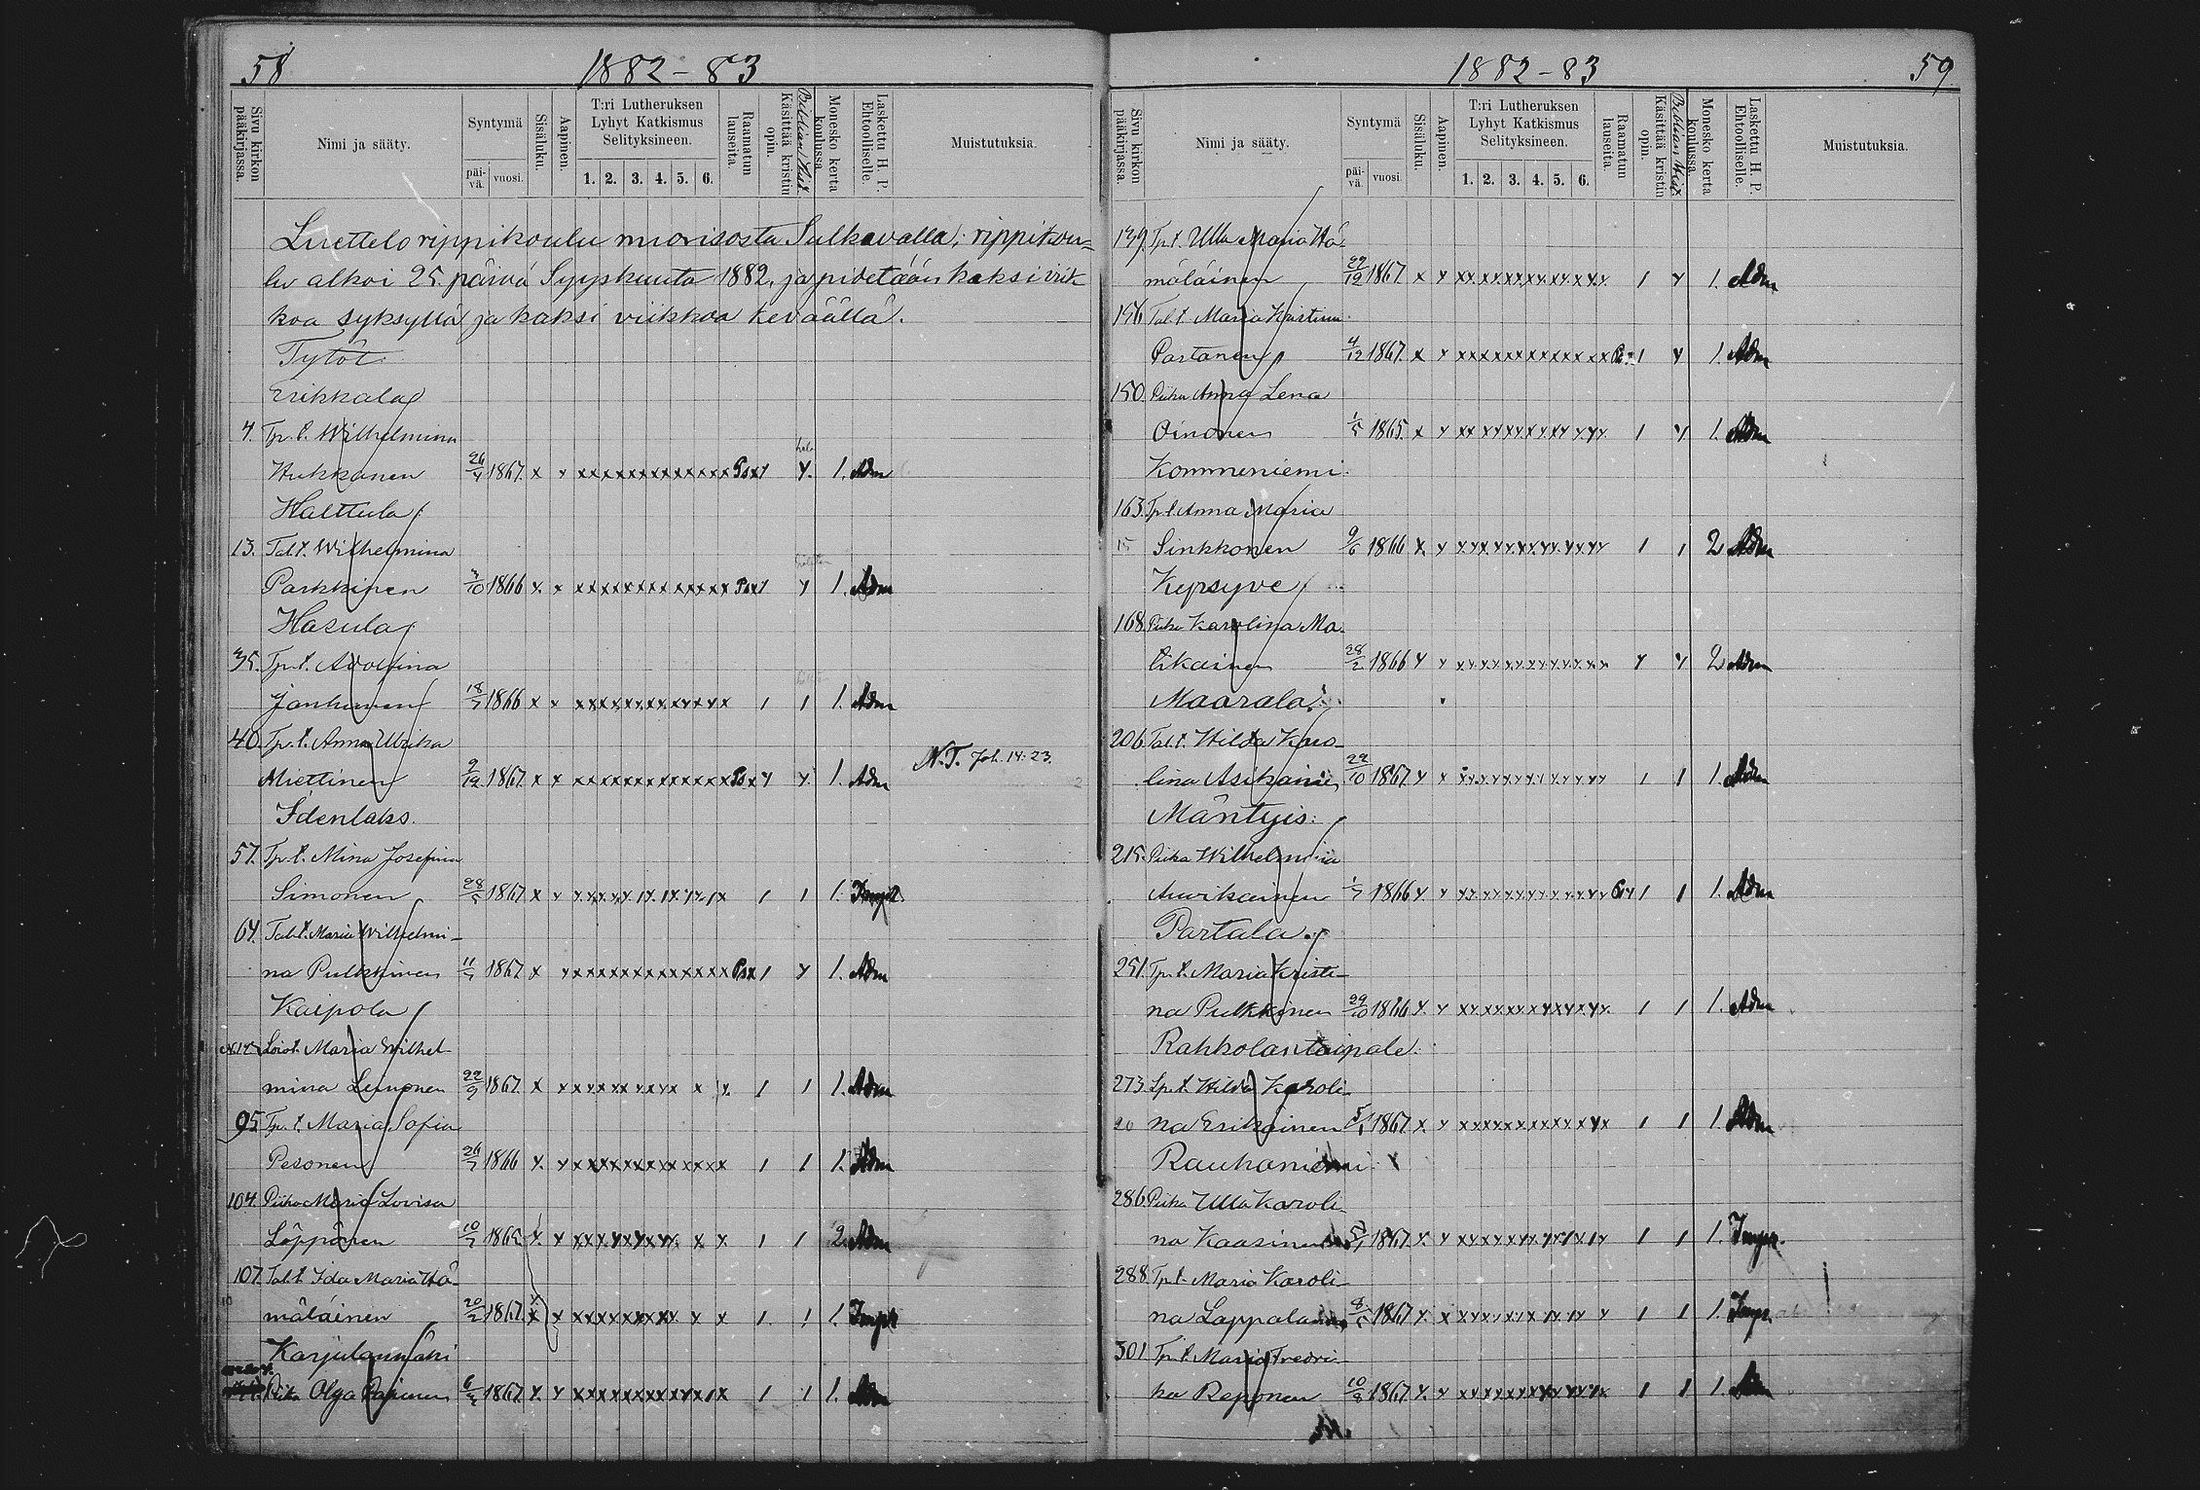 58
1882-83
Sivu kirkon pääkirjassa.
Nimi ja sääty.
Syntymä
päi-vä.
vuosi.
Sisäluku.
Aapinen.
T:ri Lutheruksen
Lyhyt Katkismus
Selityksineen.
1. 2. 3. 4. 5. 6.
Raamatun lauseita.
Käsittää kristin opin.
Biblian Hist.
Monesko kerta koulussa.
Laskettu H. P. Ehtoolliselle.
Muistutuksia.
Luettelo rippikoulu nuorisosta Sulkavalla; rippikou=
lu alkoi 25 päivä Syyskuuta 1882, ja pidetään kaksi viik-
koa syksyllä ja kaksi viikkoa keväällä.
Tytöt:
Erikkala
4. Tpr.t. Wilhelmina
Hukkanen 26/4 1867. x x xxxxxxxxxxxx 1. Adm
Halttula
13. Tal.t. Wilhelmina
Parkkinen 1866 x. x xxxxxxxxxxxx 1. Adm
Hasula
35. Tpr.t. Adolfina
Janhunen 18/7 1866 x x xxxxxxxxxxxx 1 1 1. Adm
40. Tpr.t. Anna Ulrika
Miettinen 9/12 1867. x x xxxxxxxxxxxx 1. Adm
N.T. Joh. 14:23.
Idenlaks.
57. Tpr.t. Mina Josefina
Simonen 28/5 1867. x x 1 1 1. Impr.
64. Tal.t. Maria Wilhelmi-
na Pulkkinen 11/7 1867. x x xxxxxxxxxxxx 1. Adm
Kaipola
Loist. Maria Wilhel-
mina Leinonen 22/9 1867. x 1 1 1. Adm
95. Tpr.t. Maria Sofia
Pesonen 26/7 1866 x. x xxxxxxxxxxxx 1 1 1. Adm
104. Piika Maria Lovisa
Löppönen 10/7 1 1 2. Adm
107. Tal.t. Ida Maria Hä-
mäläinen 20/2 1867. x x 1. 1 1. Impr
Karjulanmäki
Piika Olga 1867. x. x 1 1 1. Adm
1882-83
59.
Sivu kirkon pääkirjassa.
Nimi ja sääty.
Syntymä
päi-vä.
vuosi.
Sisäluku.
Aapinen.
T:ri Lutheruksen
Lyhyt Katkismus
Selityksineen.
1. 2. 3. 4. 5. 6.
Raamatun lauseita.
Käsittää kristin opin.
Biblian Hist.
Monesko kerta koulussa.
Laskettu H. P. Ehtoolliselle.
Muistutuksia.
Tpr.t. Ulla Maria Hä-
mäläinen 29/12 1867. x x xxxxxxxxxxxx 1 1. Adm
Tal.t. Maria Kristiina
Partanen 4/12 1867. x x xxxxxxxxxxxx 1 1. Adm
150. Piika Anna Lena
Oinonen 1/5 1865. x x xxxxxxxxxxxx 1 1. Adm
Kommeniemi.
163. Tpr.t. Anna Maria
15 Sinkkonen 9/6 1866 x. x xxxxxxxxxxxx 1 1 2 Adm
Kypsyve
168. Piika Karolina Ma-
tikainen 28/2 1866 x x xxxxxxxxxxxx 2 Adm
Maarala.
206. Tal.t. Hilda Karo-
lina Asikainen 22/10 1867. x x xxxxxxxxxxxx 1 1 1. Adm
Mäntyis:
215. Piika Wilhelmiina
Auvikainen 1/7 1866 x. x xxxxxxxxxxxx 1 1 1. Adm
Partala.
251. Tpr.t. Maria Kristi-
na Pulkkinen 29/10 1866 x. x xxxxxxxxxxxx 1 1 1. Adm
Rahkolantaipale.
273. Lpr.t. Hilda Karoli-
20 na Erikäinen 5/1 1867. x. x xxxxxxxxxxxx 1 1 1. Adm
Rauhaniemi.
286. Piika Ulla Karoli-
na Kaasinen 1867. x. x 1 1 1. Impr.
288. Tpr.t. Maria Karoli-
na Lappalainen 8/5 1867. x. x 1 1 1. Impr.
301. Tpr.t. Maria Fredri-
ka Reponen 10/8 1867. x. x 1 1 1.